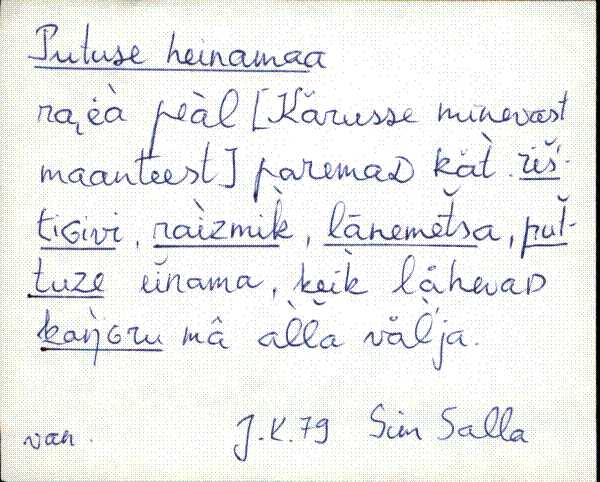 Putuse heinamaa
raᴊèà peàl [Kärusse minevast
maanteest] paremaD kät. riš̀-
tiGivi, raìzmìk, lānemèt̆sa, put̆-
tuze einama, keìk lähevaD
kaŋ̀Gru mâ àl̆l̆a väl̀ja.
van. J.K.79 Siim Salla